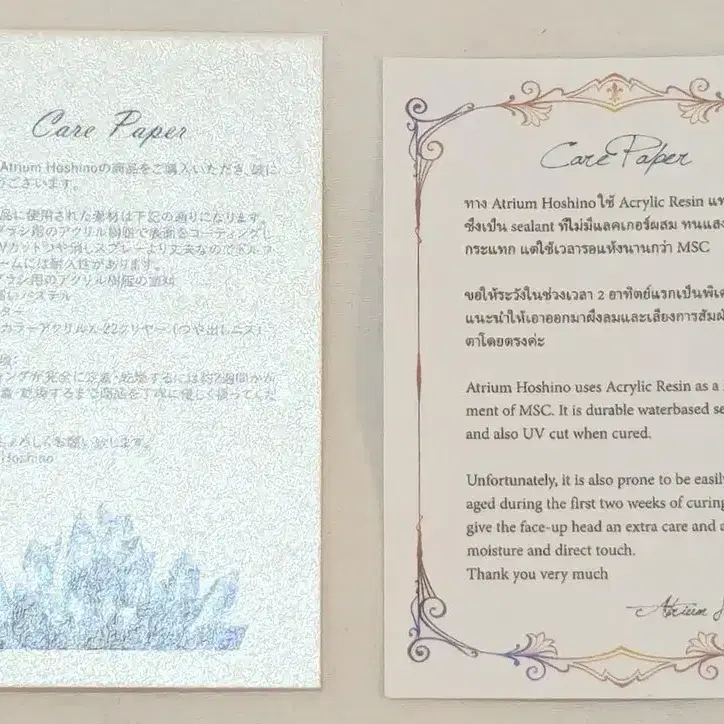 Care Paper
Atrium Hoshinoの商品をご購入いただき、誠に
うございます。
品に使用された素材は下記の通りになります。
ブラシ用のアクリル樹脂で表面をコーティングし
Vカットつや消しスプレーより丈夫なのでドルフ
ームには耐久性があります。
ブラシ用のアクリル樹脂の塗料
パステル
ター
カラーアクリルX-22クリヤー(つや出しニス)
項:
ングが完全に定着・乾燥するには約2週間かか
着・乾燥するまで商品を丁寧に優しく扱ってくだ
よろしくお願い致します。
Hoshino
Care Paper
ทาง Atrium Hoshino ใช้ Acrylic Resin แท
ซึ่งเป็น sealant ที่ไม่มีแลคเกอร์ผสม ทนแสง
กระแทก แต่ใช้เวลารอแห้งนานกว่า MSC
ขอให้ระวังในช่วงเวลา 2 อาทิตย์แรกเป็นพิเศ
แนะนำให้เอาออกมาผึ่งลมและเลี่ยงการสัมผั
ตาโดยตรงค่ะ
Atrium Hoshino uses Acrylic Resin as a
ment of MSC. It is durable waterbased se
and also UV cut when cured.
Unfortunately, it is also prone to be easily
aged during the first two weeks of curing
give the face-up head an extra care and a
moisture and direct touch.
Thank you very much
Atrium